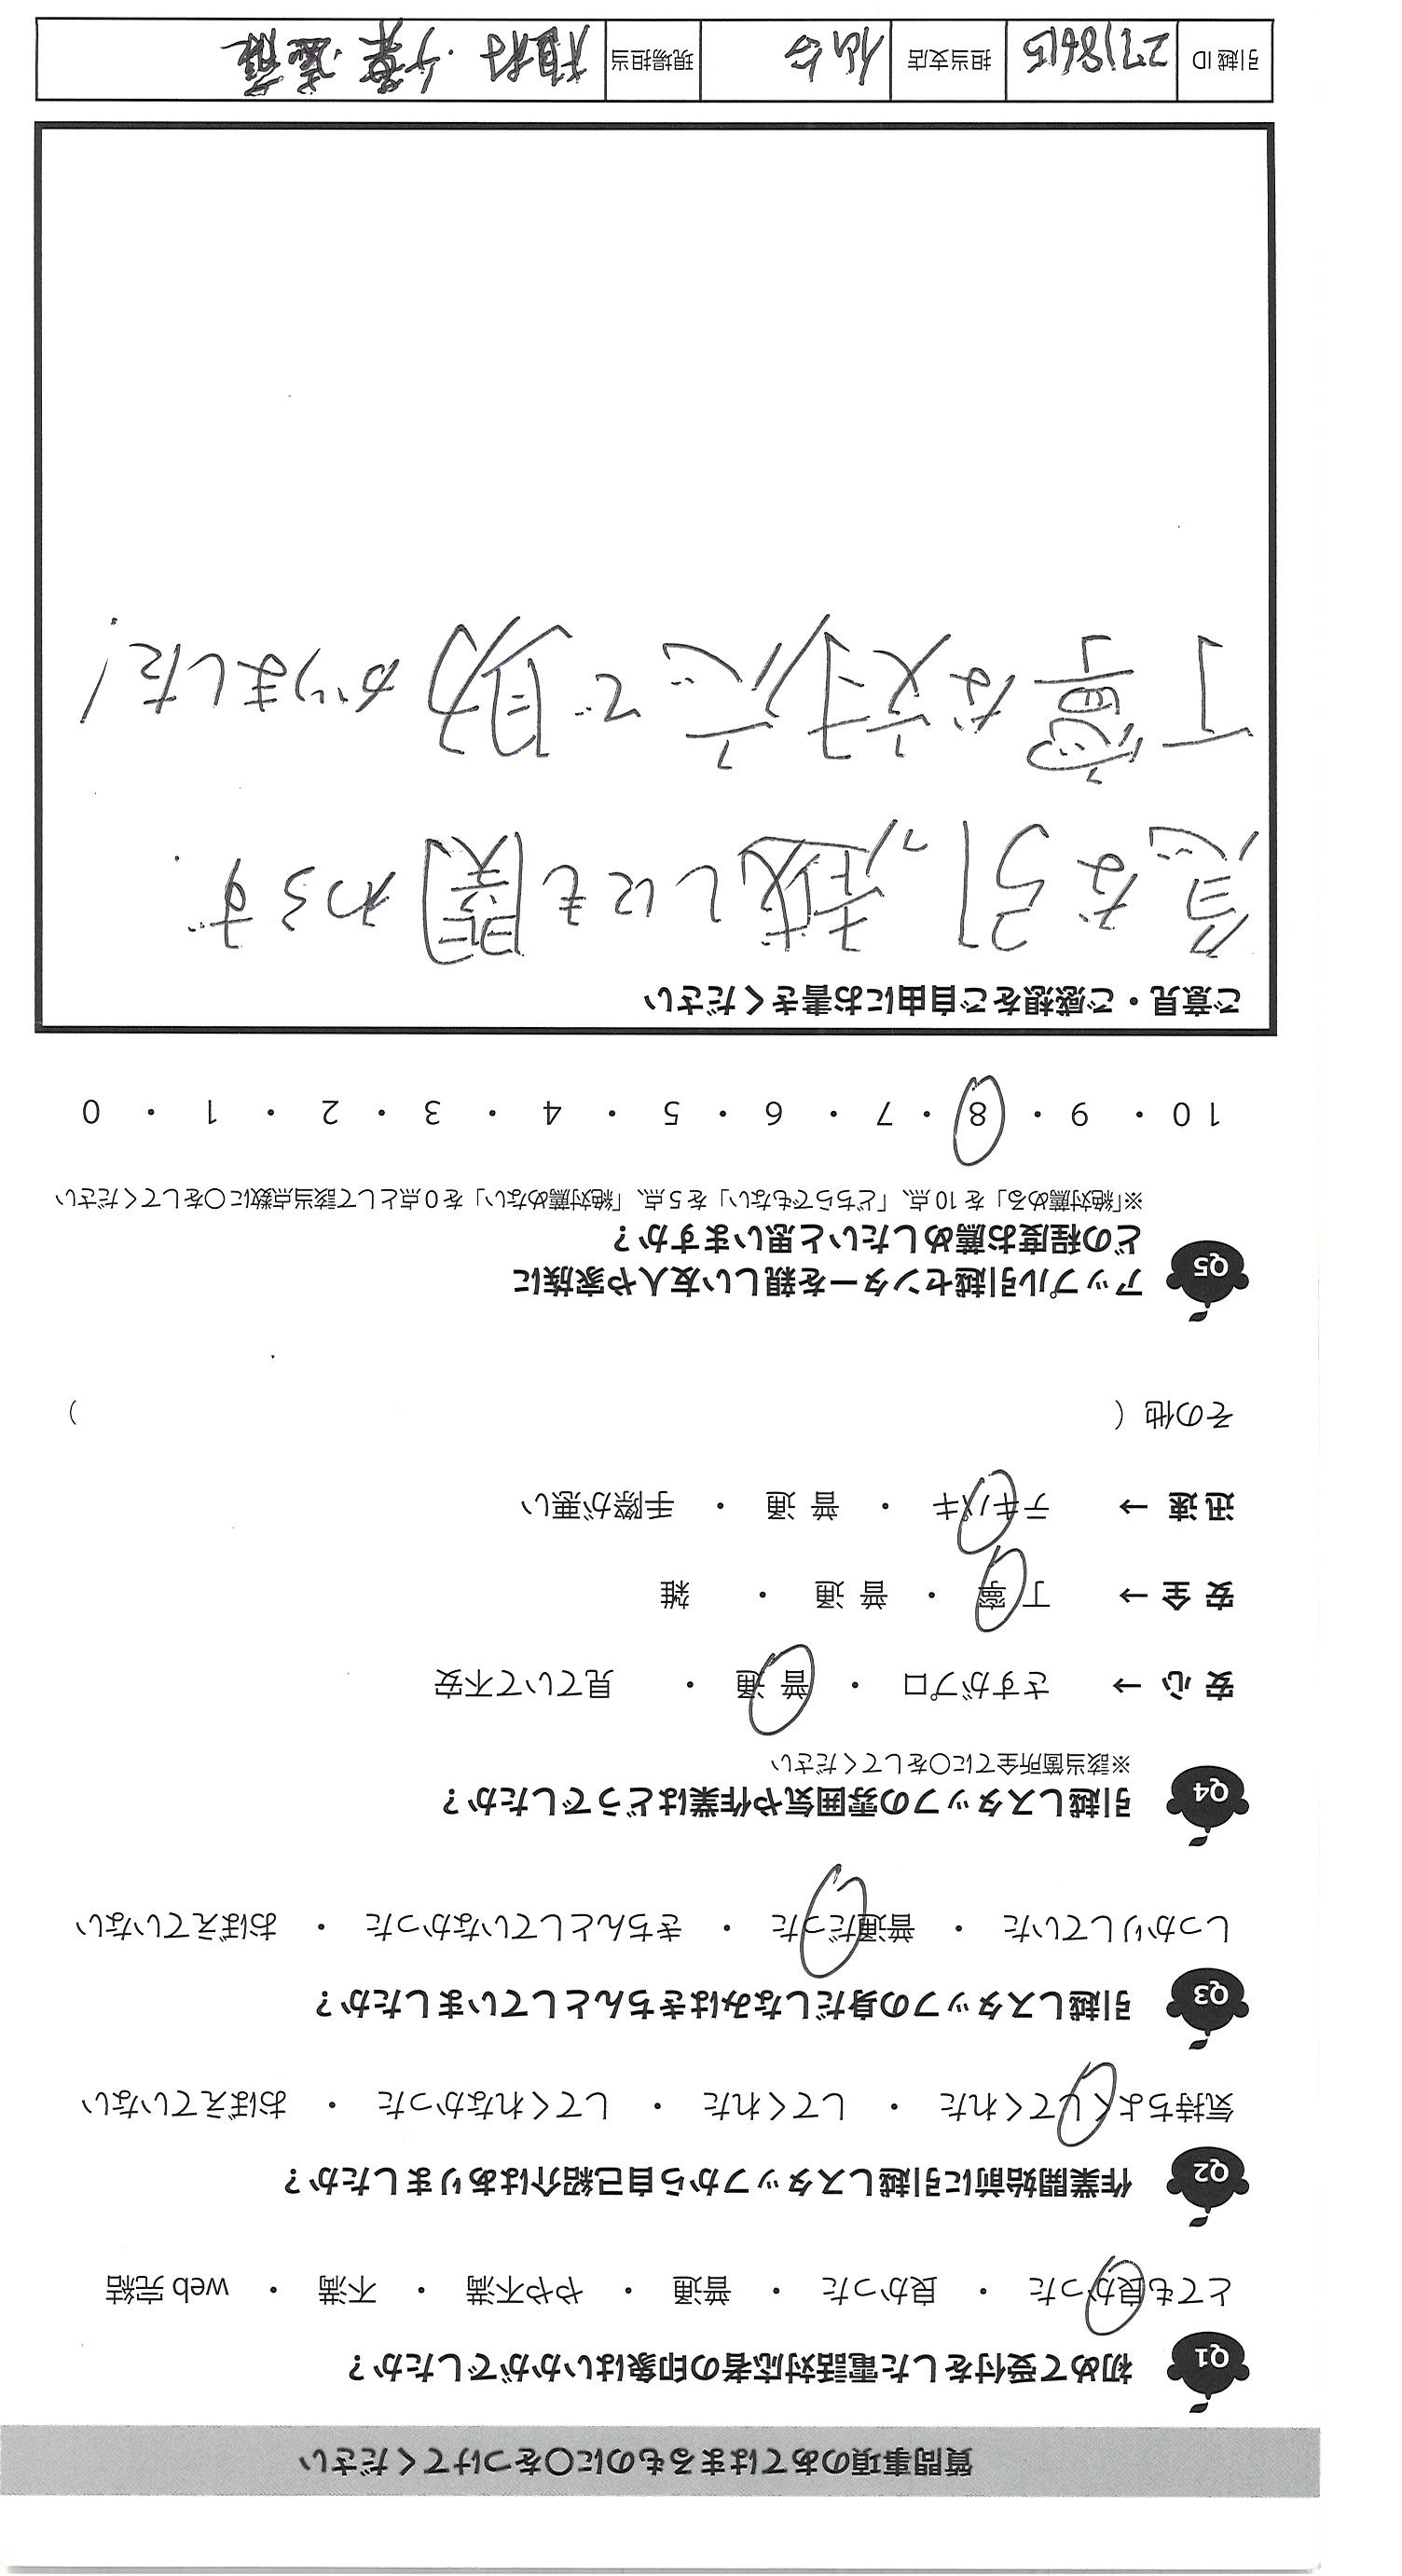 質問事項のあてはまるものに〇をつけてください
Q1 初めて受付をした電話対応者の印象はいかがでしたか？
とても良かった ・ 良かった ・ 普通 ・ やや不満 ・ 不満 ・ web 完結
Q2 作業開始前に引越しスタッフから自己紹介はありましたか？
気持ちよくしてくれた ・ してくれた ・ してくれなかった ・ おぼえていない
Q3 引越しスタッフの身だしなみはきちんとしていましたか？
しっかりしていた ・ 普通だった ・ きちんとしていなかった ・ おぼえていない
Q4 引越しスタッフの雰囲気や作業はどうでしたか？
※該当箇所全てに〇をしてください
安 心 → さすがプロ ・ 普 通 ・ 見ていて不安
安 全 → 丁 寧 ・ 普 通 ・ 雑
迅 速 → テキパキ ・ 普 通 ・ 手際が悪い
その他（ ）
Q5 アップル引越センターを親しい友人や家族に
どの程度お薦めしたいと思いますか？
※「絶対薦める」を 10 点、「どちらでもない」を 5 点、「絶対薦めない」を 0 点として該当点数に〇をしてください
10 ・ 9 ・ 8 ・ 7 ・ 6 ・ 5 ・ 4 ・ 3 ・ 2 ・ 1 ・ 0
ご意見・ご感想をご自由にお書きください
急な引っ越しにも関わらず、
丁寧な対応で助かりました！
引越 ID 2718615 担当支店 仙台 現場担当